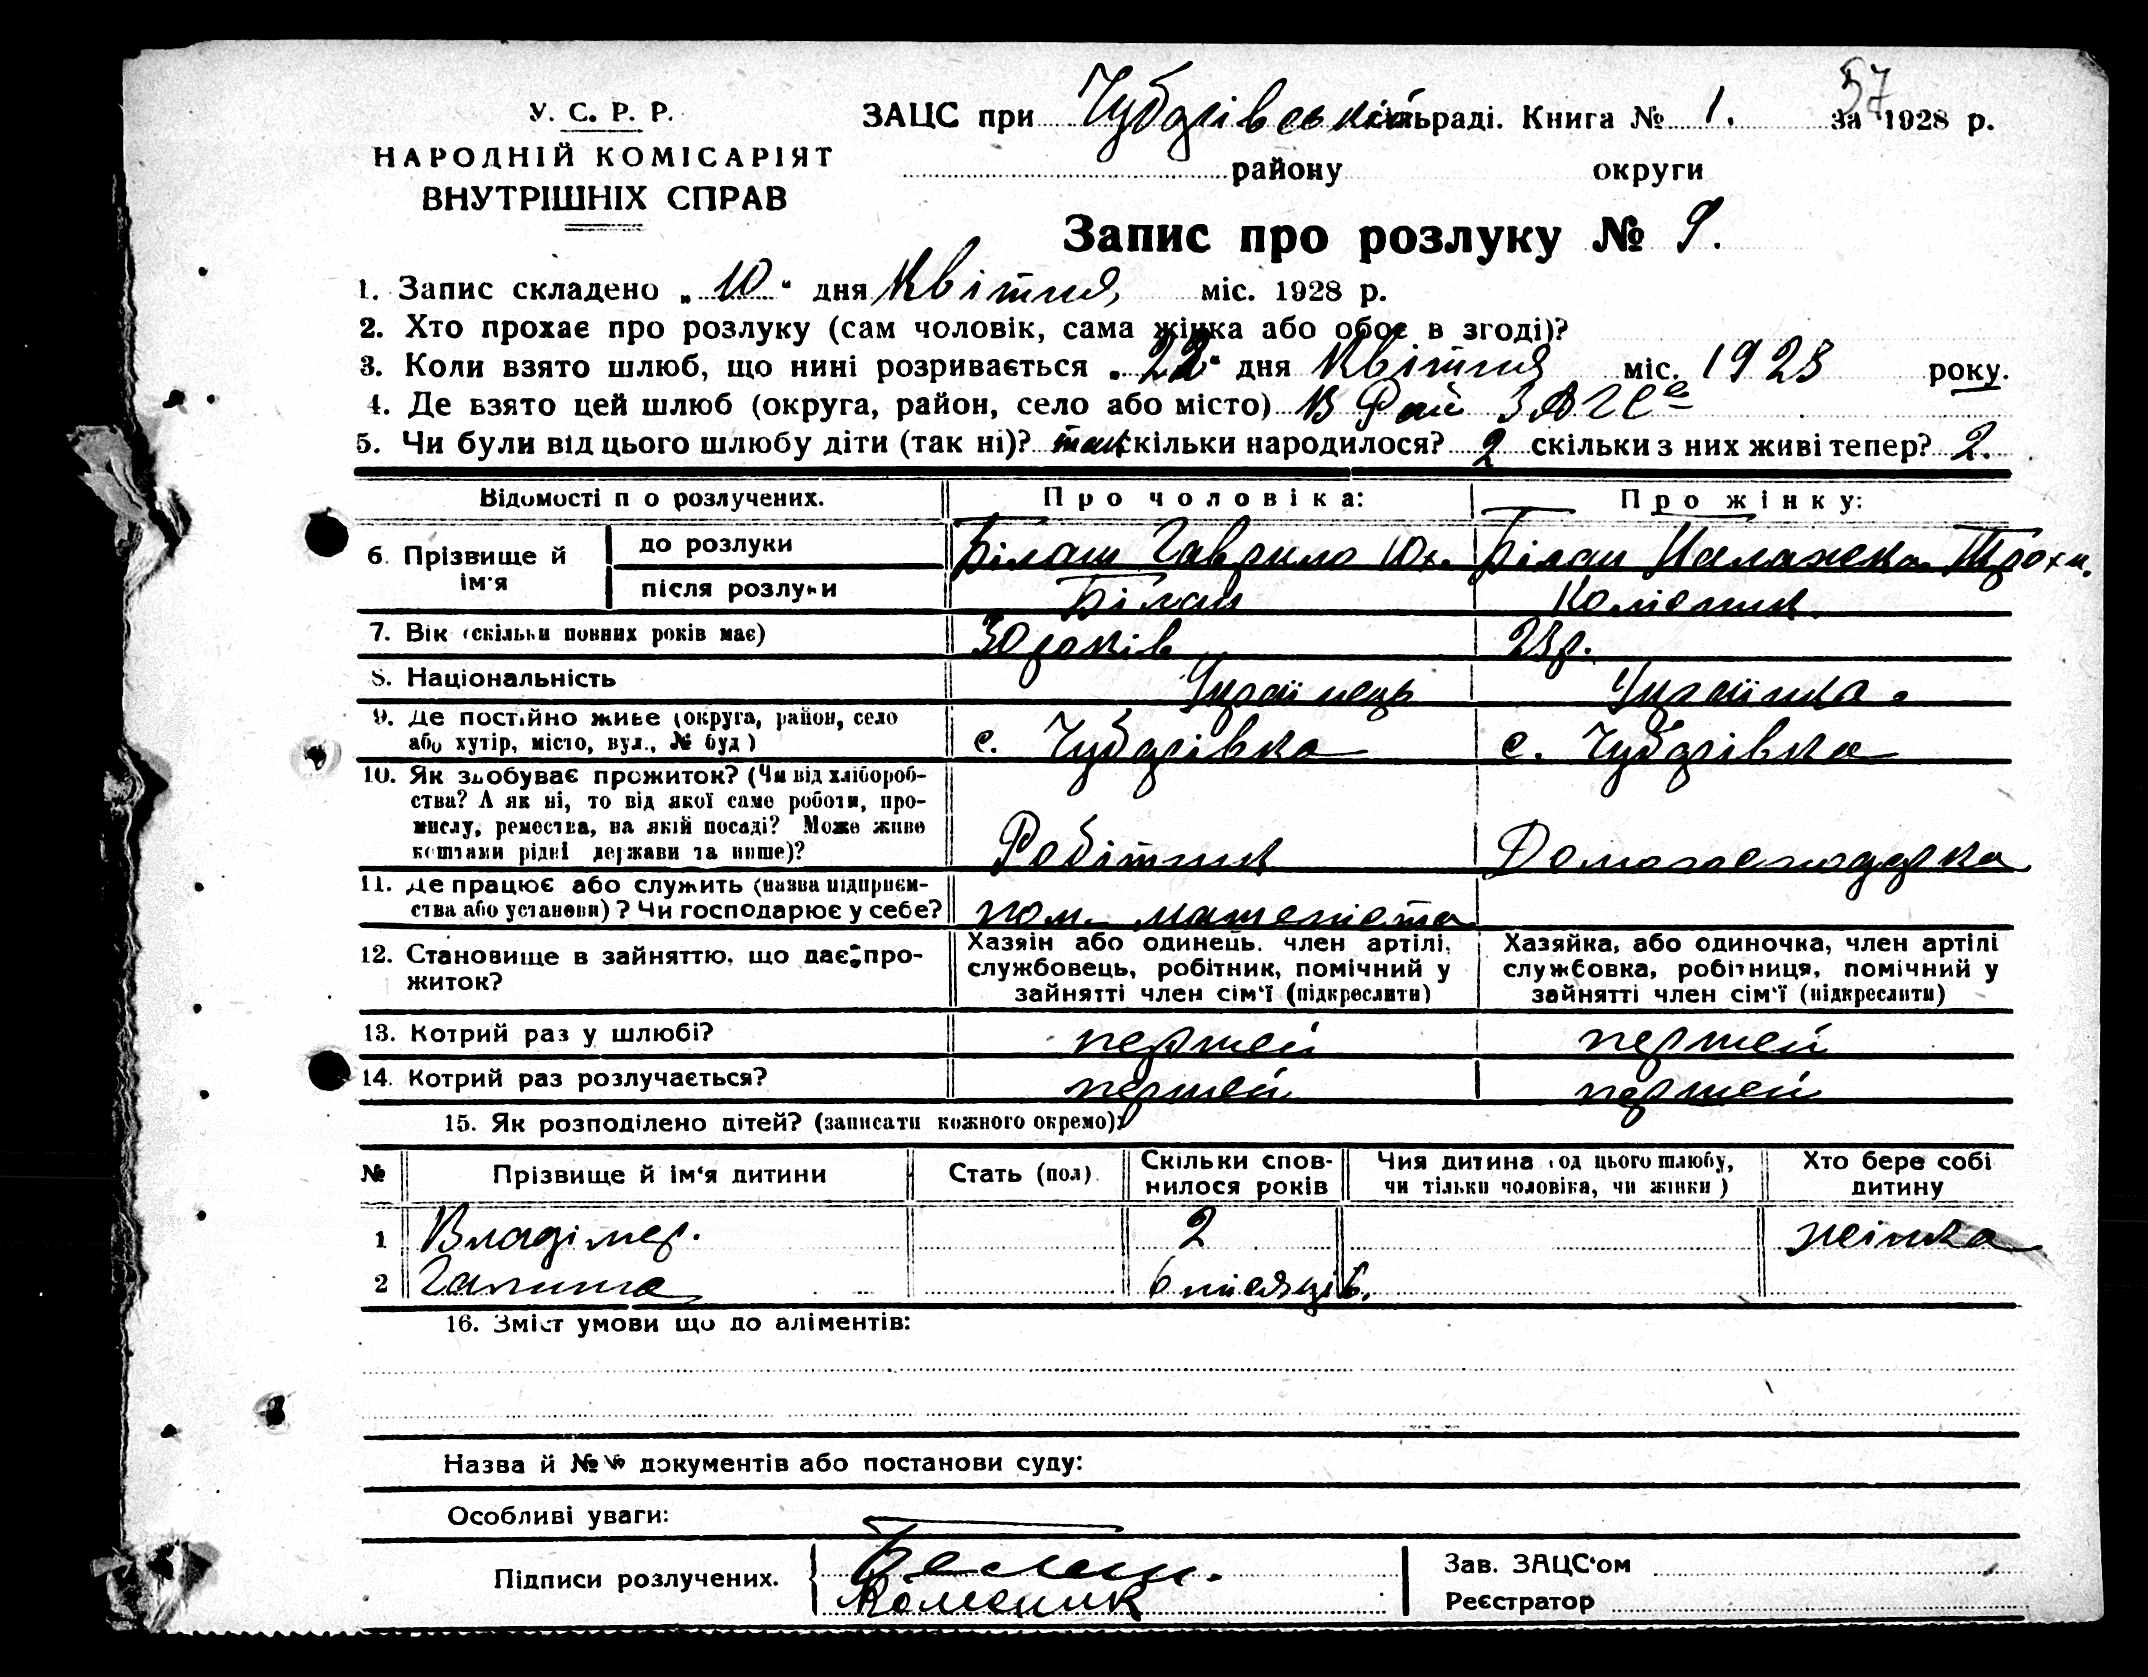 57
У. С. Р. Р.
НАРОДНІЙ КОМІСАРІЯТ
ВНУТРІШНІХ СПРАВ
ЗАЦС при Чубарівській сільраді. Книга № 1. за 1928 р.
району округи
Запис про розлуку № 9.
1. Запис складено „ 10 " дня Квітня, міс. 1928 р.
2. Хто прохає про розлуку (сам чоловік, сама жінка або обоє в згоді)?
3. Коли взято шлюб, що нині розривається „ 22 " дня Квітня міс. 1923 року.
4. Де взято цей шлюб (округа, район, село або місто) В Рай ЗАГСе
5. Чи були від цього шлюбу діти (так ні)? так скільки народилося? 2 скільки з них живі тепер? 2.
Відомості по розлучених. Про чоловіка: Про жінку:
6. Прізвище й ім'я до розлуки Білаш Гаврило Юх. Білаш Меланжка Трохи.
після розлуки Білаш Колісник.
7. Вік (скільки повних років має) 30 років 23 р.
8. Національність Українець Українка.
9. Де постійно живе (округа, район, село
або хутір, місто, вул., № буд) с. Чубарівка с. Чубарівка
10. Як здобуває прожиток? (Чи від хлібороб-
ства? А як ні, то від якої саме роботи, про-
мислу, ремества, на якій посаді? Може живе
коштами рідні держави та инше)? Робітник Домогосподарка
11. Де працює або служить (назва підприєм-
ства або установи)? Чи господарює у себе? пом. машеніста
12. Становище в зайняттю, що дає про-
житок?
Хазяін або одинець, член артілі,
службовець, робітник, помічний у
зайнятті член сім'ї (підкреслити)
Хазяйка, або одиночка, член артілі
службовка, робітниця, помічний у
зайнятті член сім'ї (підкреслити)
13. Котрий раз у шлюбі? першей першей
14. Котрий раз розлучається? першей першей
15. Як розподілено дітей? (записати кожного окремо):
№ Прізвище й ім'я дитини Стать (пол) Скільки спов-
нилося років Чия дитина (од цього шлюбу,
чи тільки чоловіка, чи жінки) Хто бере собі
дитину
1 Владімер. 2 жінка
2 Галина 6 місяців.
16. Зміст умови що до аліментів:
Назва й №№ документів або постанови суду:
Особливі уваги:
Підписи розлучених. Белаш.
Колесник
Зав. ЗАЦС'ом
Реєстратор